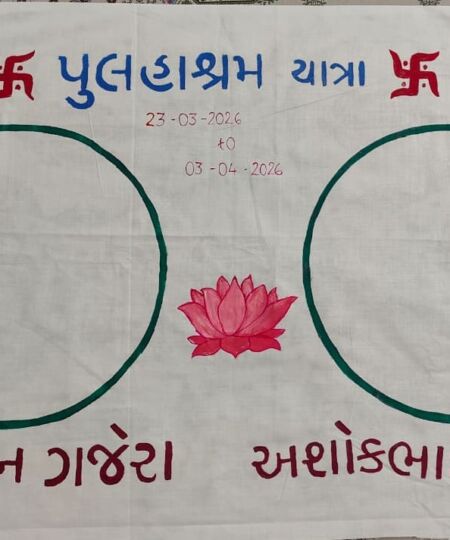 પુલહાશ્રમ યાત્રા
23-03-2026
to
03-04-2026
ન ગજેરા અશોકભા